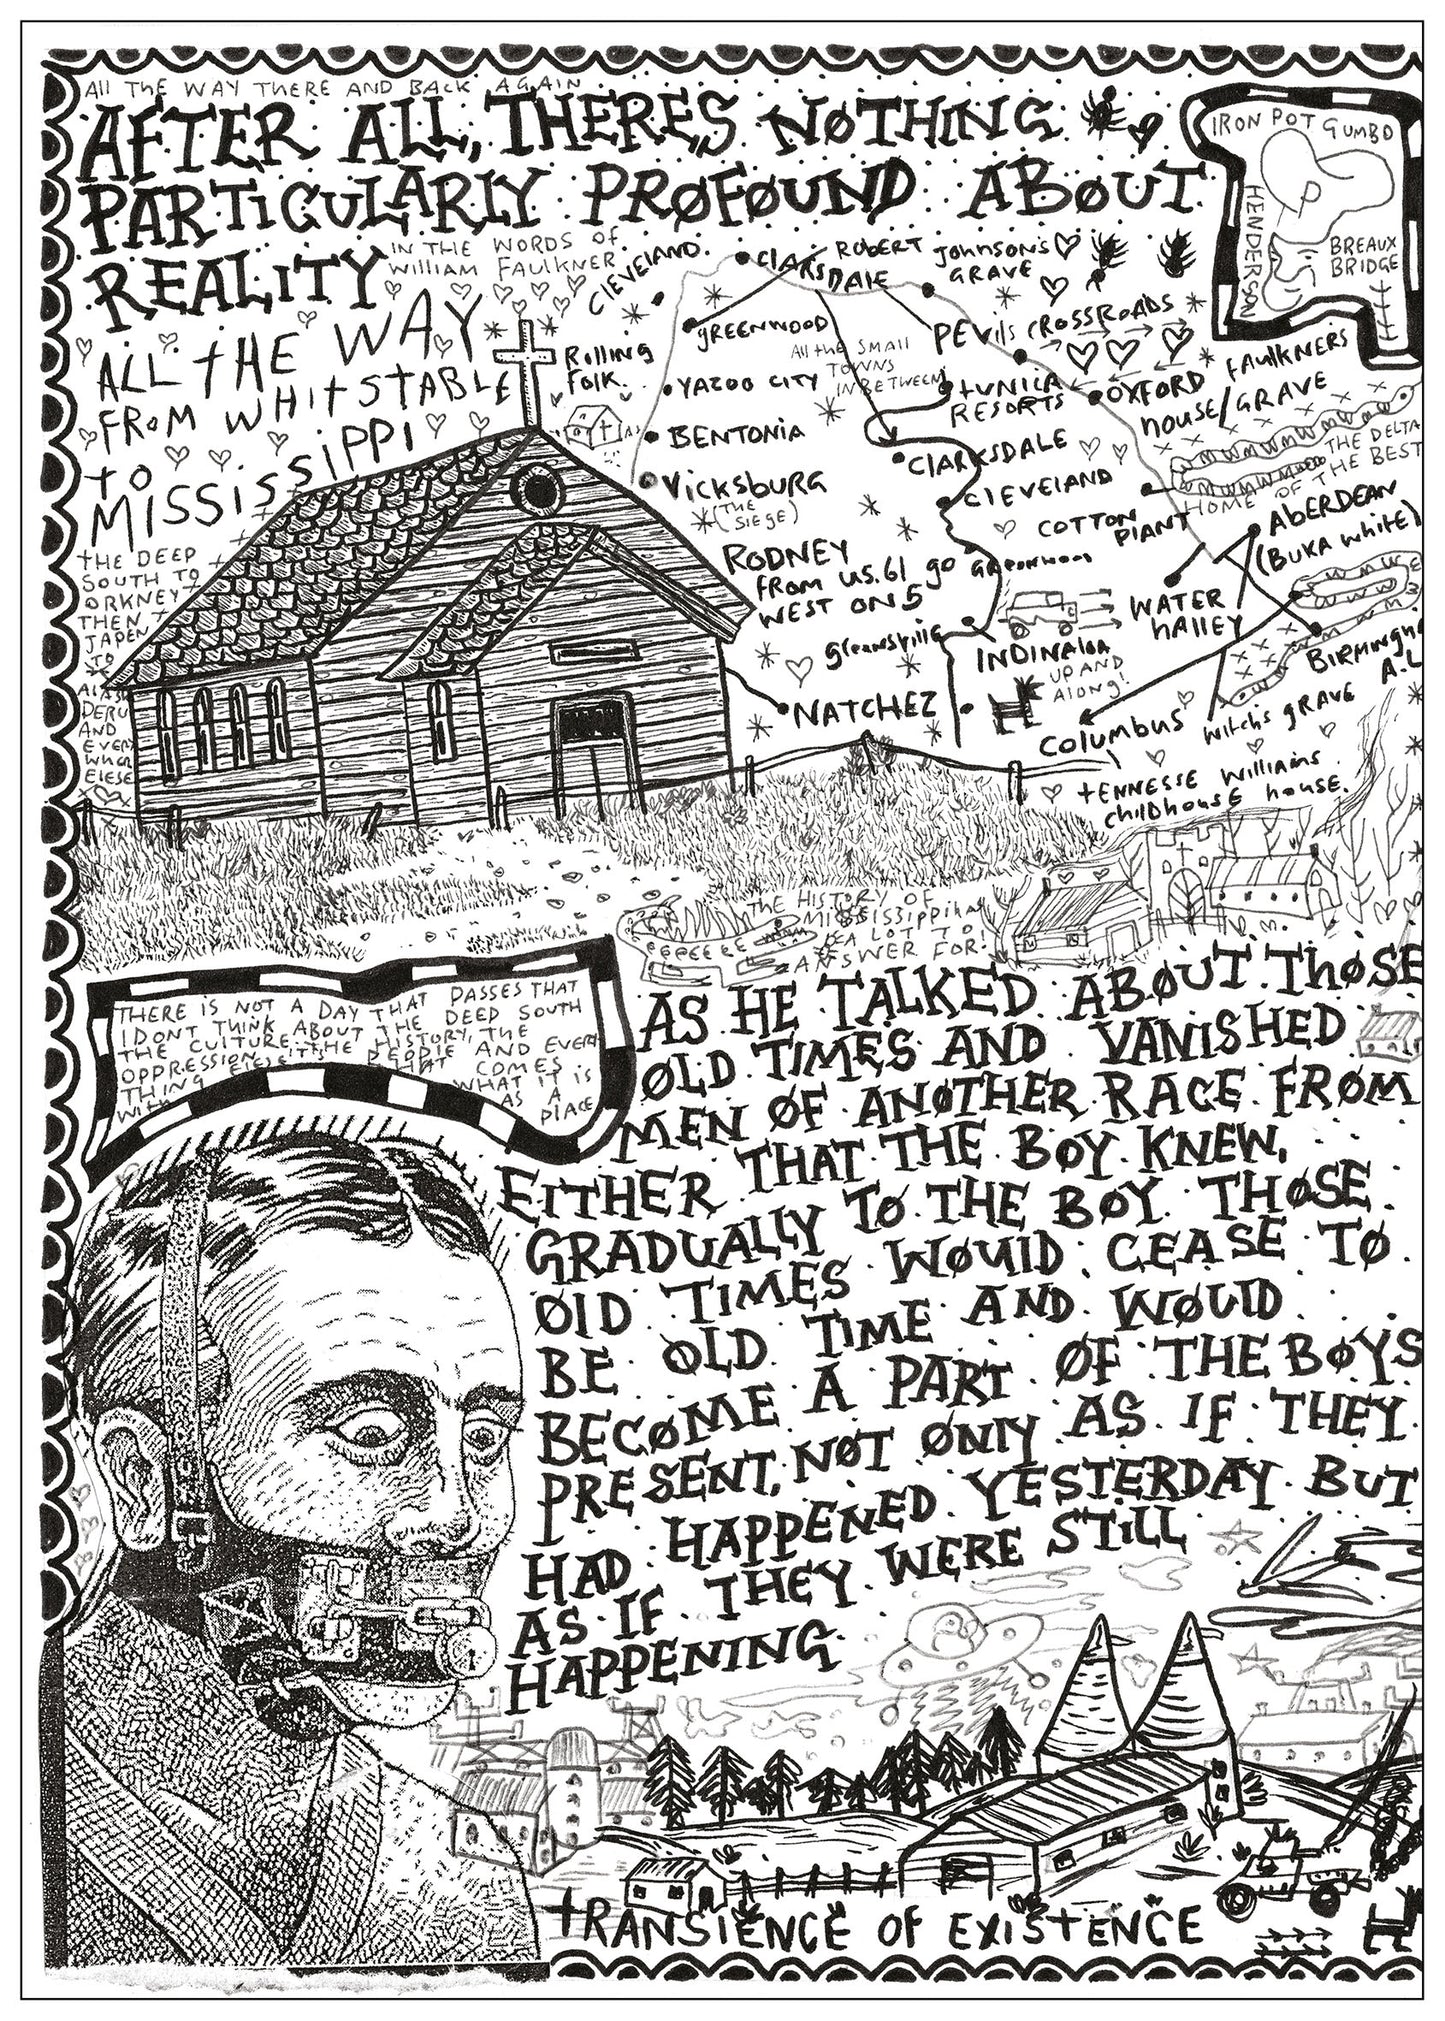 All THE WAY THERE AND BACK AGAIN
AFTER ALL, THERES NØTHING
PARTiCULARLY PRØFØUND ABØUT
REALITY
IN THE WORDS OF
William FAULKNER
ALL tHE WAY
FROM WHItSTABLE
to
MISSISSIPPI
tHE DEEP
SOUTH TO
ORKNEY
THEN T
JAPEN
TO
AND
EVERY
WHER
ElESE
IRON POT GUMBO
HENDERSON
BREAUX
BRIDGE
CLEVELAND.
CLARKSDALE
ROBERT Johnson's
GRAVE
gREENWOOD
All thE SMAll
TOWNS
IN BETWEEN
DEVils CROSSROADS
Rolling
FolK.
YAZOO CITY
tUNICA
RESORTS
OXFORD
FAUlKNERS
house/GRAVE
BENTONIA
CLARKSDALE
THE DELTA
OF THE BEST
HOME
VICKSbURG
(THE
SIEGE)
CLEVEIAND
COTTON
PlANT
AbERDEAN
(BUKA white)
RODNEY
FROM US.61 go
WEST ON 5
GREENWOOD
WATER
hAllEY
greensville
INDINAlOA
UP AND
Along!
BIRMINgh
A.L
NATCHEZ
Columbus
Witchs gRAVE
tENNESSE Williams
childhousE housE.
THE HISTORY OF
MISSISSIPPI has
A LOT TO
ANSWER FOR!
THERE IS NOT A DAY THAT PASSES THAT
I DONT THINK ABOUT THE DEEP SOUTH
THE CULTURE, THE HISTORY, THE
OPPRESSION, THE PEOPlE AND EVERY
THING ElESE THAT COMES
WITH WHAT IT IS
AS A
PlACE
AS HE TALKED ABØUT THØSE
ØLD TIMES AND VANISHED
MEN ØF ANØTHER RACE FRØM
EITHER THAT THE BØY KNEW,
GRADUALLY TØ THE BØY THØSE
ØlD TIMES WØUlD CEASE TØ
BE ØLD TIME AND WØUlD
BECØME A PART ØF THE BØYS
PRESENT, NØT ØNlY AS IF THEY
HAD HAPPENED YESTERDAY BUT
AS IF THEY WERE STiLL
HAPPENING
tRANSIENCE OF EXIStENCE